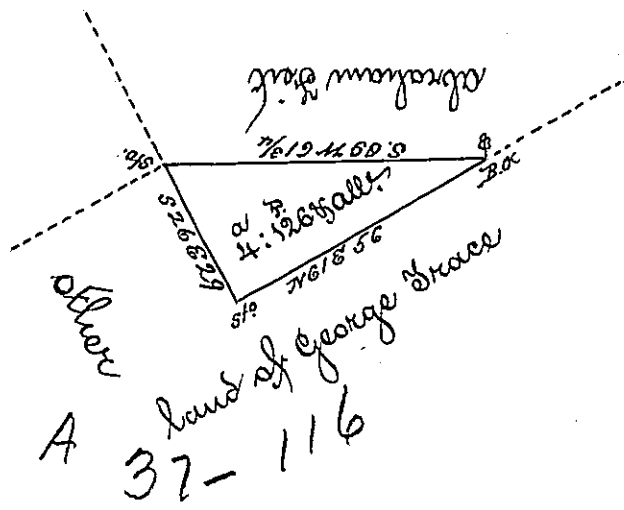 Abraham
S. 89 W 61 3/4
Sto.
B.O.
S 26 E 29
a P.
4: 126 & allr.
N 61 E 56
Sto.
other
land of George Trace
A
37-116